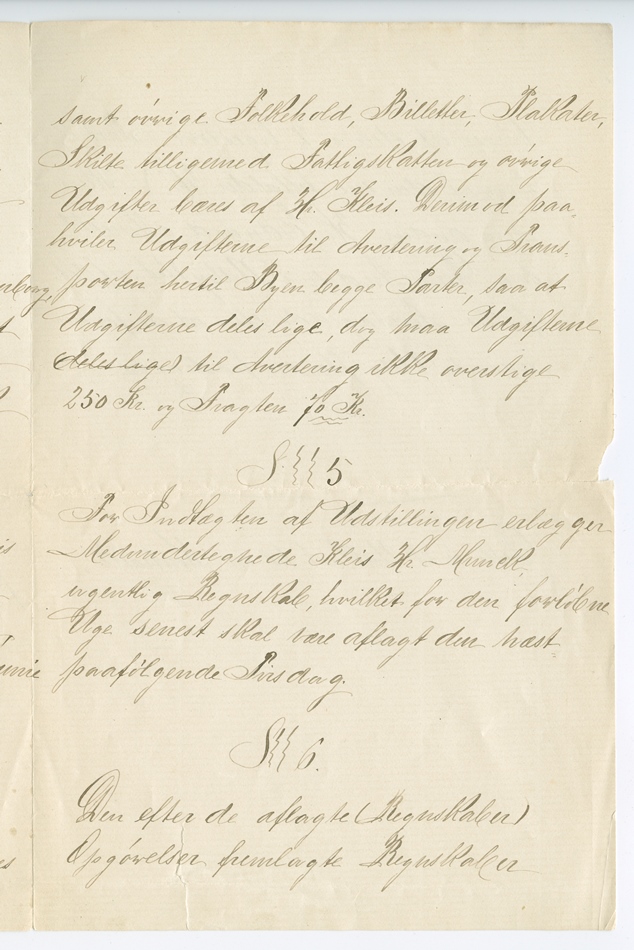 samt óvrige Folkehold, Billetter, Plakater,
Skilte tilligemed Fattigskatten og óvrige
Udgifter bæres af Hr. Kleis. Derimod paa-
hviler Udgifterne til Avertering og Trans-
porten hertil Byen begge Parter, saa at
Udgifterne deles lige, dog maa Udgifterne
deles lige) til Avertering ikke overstige
250 Kr. og Fragten 70 Kr.
S. 5
For Indtægten af Udstillingen erlægger
Medundertegnede Kleis Hr. Munck
ugentlig Regnskab, hvilket for den forlóbne
Uge senest skal være aflagt den næst
paafólgende Tirsdag.
S 6.
Den efter de aflagte (Regnskaber)
Opgórelser fremlagte Regnskaber